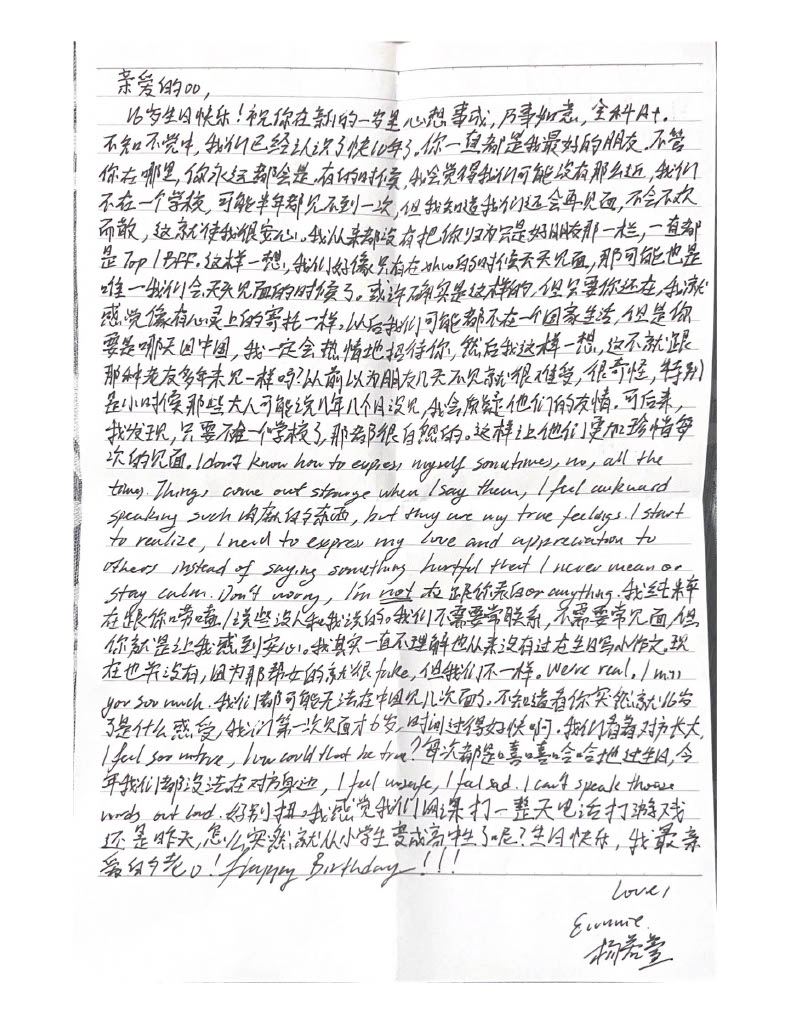 亲爱的OO,
16岁生日快乐！祝你在新的一岁里心想事成，万事如意，全科A+.
不知不觉中，我们已经认识了快10年了。你一直都是我最好的朋友。不管
你在哪里，你永远都会是。有的时候，我会觉得我们可能没有那么近，我们
不在一个学校，可能半年都见不到一次，但我知道我们还会再见面，不会不欢
而散，这就使我很安心。我从来都没有把你归为只是好朋友那一栏，一直都
是Top 1 BFF. 这样一想，我们好像只有在的时候天天见面，那可能也是
唯一我们会天天见面的时候了。或许确实是这样的，但只要你还在，我就
感觉像有心灵上的寄托一样。以后我们可能都不在一个国家生活，但是你
要是哪天回中国，我一定会热情地招待你，然后我这样一想，这不就跟
那种老友多年未见一样吗？以前以为朋友几天不见就很难受，很奇怪，特别
是小时候那些大人可能说几年几个月没见，我会质疑他们的友情。可后来，
我发现，只要不在一个学校了，那都很自然的。这样让他们更加珍惜每
次的见面。I don't know how to express myself sometimes, no, all the
times. Things come out strange when I say them, I feel awkward
speaking such 肉麻的东西, but they are my true feelings. I start
to realize, I need to express my love and appreciation to
others instead of saying something hurtful that I never mean or
stay calm. Don't worry, I'm not 在跟你表白or anything. 我纯来
在跟你唠嗑/说些没人和我说的。我们不需要常联系，不需要常见面，但
你就是让我感到安心。我其实一直不理解也从来没有过在生日写小作文。现
在也并没有，因为那帮女的就很fake，但我们不一样。We're real. I miss
you soo much. 我们都可能无法在中国见几次面了。不知道看你突然就16岁
了是什么感受，我们第一次见面才6岁，时间过得好快啊。我们看着对方长大,
I feel soo mature, how could that be true? 每次都是嘻嘻哈哈地过生日，今
年我们都没法在对方身边, I feel unsafe, I feel sad. I can't speak those
words out loud. 好别扭。我感觉我们网课打一整天电话打游戏
还是昨天，怎么突然就从小学生变成高中生了呢？生日快乐，我最亲
爱的老O! Happy Birthday!!!
Love,
Eunnie.
杨若萱